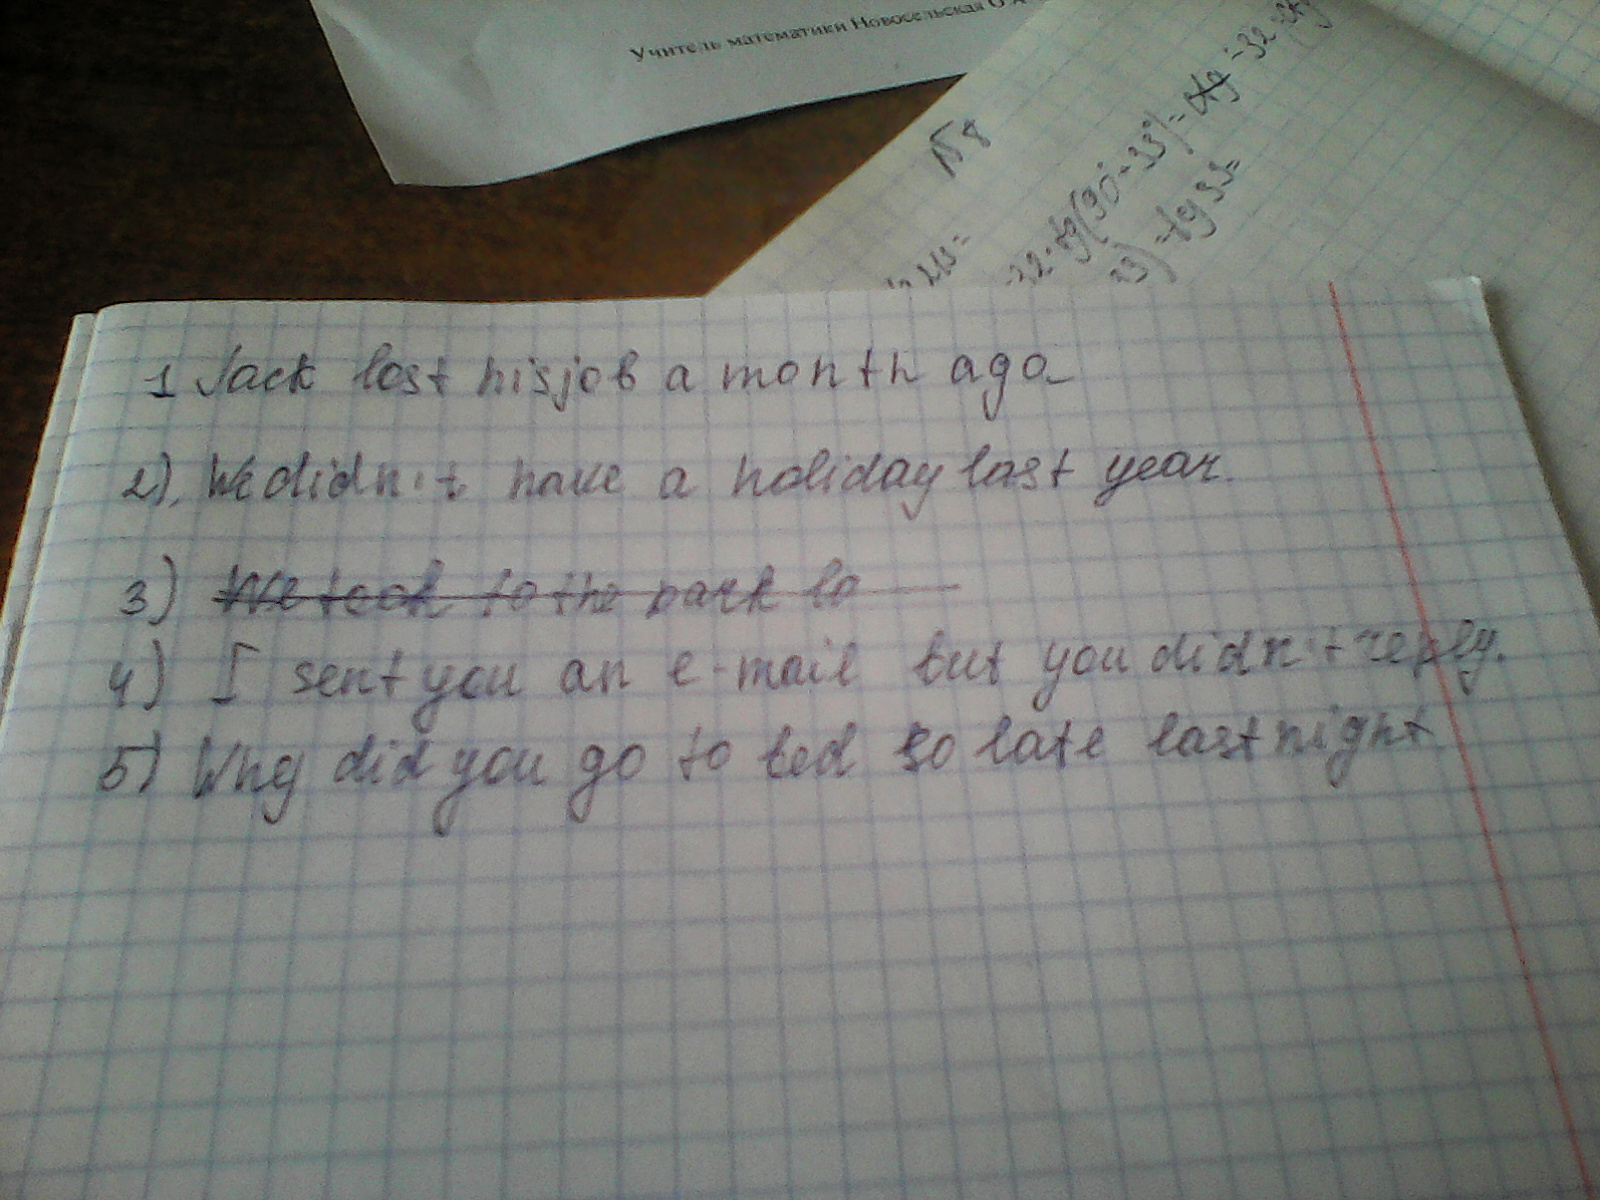 Учитель математики Новосельская О А
№ 8
1 Jack lost his job a month ago
2). We didn't have a holiday last year.
3) We took to the park lo
4) I sent you an e-mail but you didn't reply.
5) Why did you go to bed so late last night